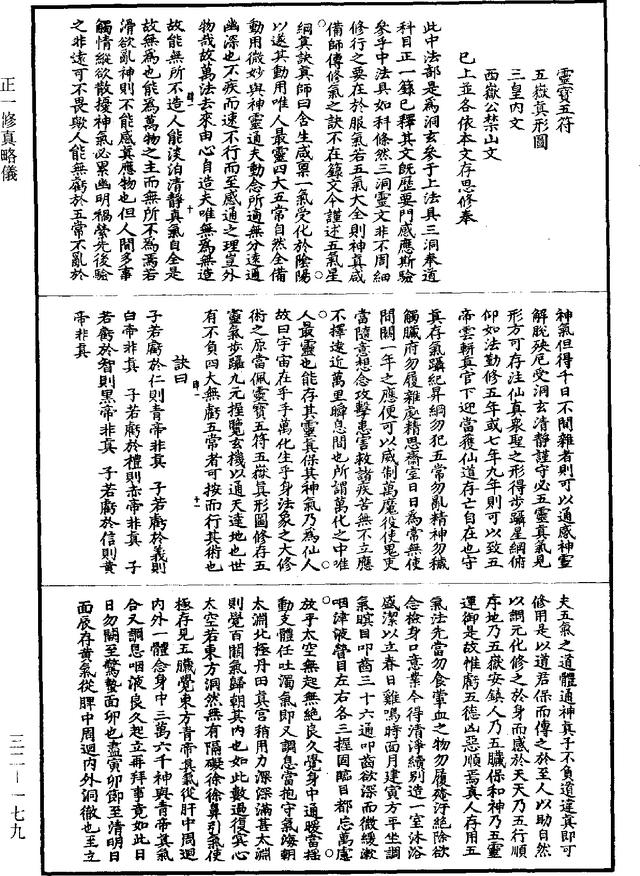 靈寶五符
五嶽真形圖
三皇內文
西嶽公禁山文
已上並各依本文存思修奉
此中法部是為洞玄參于上法具三洞奉道
科目正一錄已釋其文既歷要門感應斯驗
參乎中法具如科條然三洞靈文非不周細
修行之要在於服氣若五氣大全則神真咸
備師傳修氣之訣不在籙文今謹述五氣呈
綱真訣真師曰含生咸稟一氣受化於陰陽
以遂其動用唯人最靈四大五常自然全備
動用微妙與神靈通夫動念所適無分遠通
幽深也不疾而速不行而至感通之理豈外
物哉故萬法去來由心自造夫唯無為無造
故能無所不造人能淡泊清靜真氣自全是
故無為也能為萬物之主而無所不為焉若
滑欲亂神則不能感真應物也但人間多事
觸情縱欲散擾神氣必累幽明禍縈先後驗
之非遠可不畏歟人能無虧於五常不亂於
神氣但得千日不間雜者則可以通感神靈
解脫殃厄受洞玄清靜謹守必五靈真氣見
形方可存注仙真衆聖之形得步躡星綱俯
仰如法勤修五年或七年九年則可以致五
帝雲軿真官下迎當獲仙道存亡自在也守
真存氣躡紀昇綱勿犯五常勿亂精神勿穢
觸臟府勿履雜處精思齋室日日為常無使
間闕一年之應便可以威制萬魔役使鬼吏
當隨意想念攻擊患害救諸疾苦無不立應
不擇遠近萬里瞬息間也所謂萬化之中唯
人最靈也能存其靈真保其神氣乃為仙人
故曰宇宙在乎手萬化生乎身法象之大修
術之原當佩靈寶五符五嶽真形圖修存五
靈氣步躡九元握覽玄機以通天達地也世
有不負四大無虧五常者可按而行其術也
訣曰
子若虧於仁則青帝非真 子若虧於義則
白帝非真 子若虧於禮則赤帝非真 子
若虧於智則黑帝非真 子若虧於信則黃
帝非真
夫五氣之道體通神真子不負道違真即可
修用是以道君保而傳之於至人以助自然
以調元化修之於身而感於天天乃五行順
序地乃五嶽安鎮人乃五臟保和神乃五靈
運御是故惟虧五德凶惡順焉真人存用五
氣法先當勿食葷血之物勿履殗汙絕除欲
念檢身口意業令得清淨續別造一室沐浴
盛潔以立春日雞鳴時面月建寅方平坐調
氣瞑目叩齒三十六通叩齒欲深而微緩漱
咽津液瞥目左右各三握固臨目都忘萬慮
放乎太空無起無絕良久覺身中通暖當搖
動支體任吐濁氣即又調息當抱守氣海朝
太淵北極丹田真宮稍用力深深滿甚太淵
則覺百關氣歸朝其內也如此數過復冥心
太空若東方洞然無有隔礙徐徐鼻引氣使
極存見五臟覺東方青帝真氣從肝中周迴
內外一體念身中三萬六千神與青帝真氣
合又調息咽液良久起立再拜事竟如此日
日勿闕至驚蟄面卯也盡寅卯節至清明日
面辰存黃氣從脾中周迴內外洞徹也至立
正一修真略儀
三二—一七九